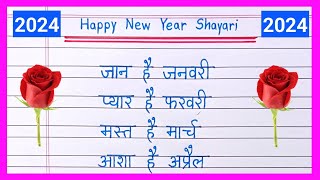 2024 Happy New Year Shayari 2024
जान है जनवरी
प्यार है फरवरी
मस्त है मार्च
आशा है अप्रैल